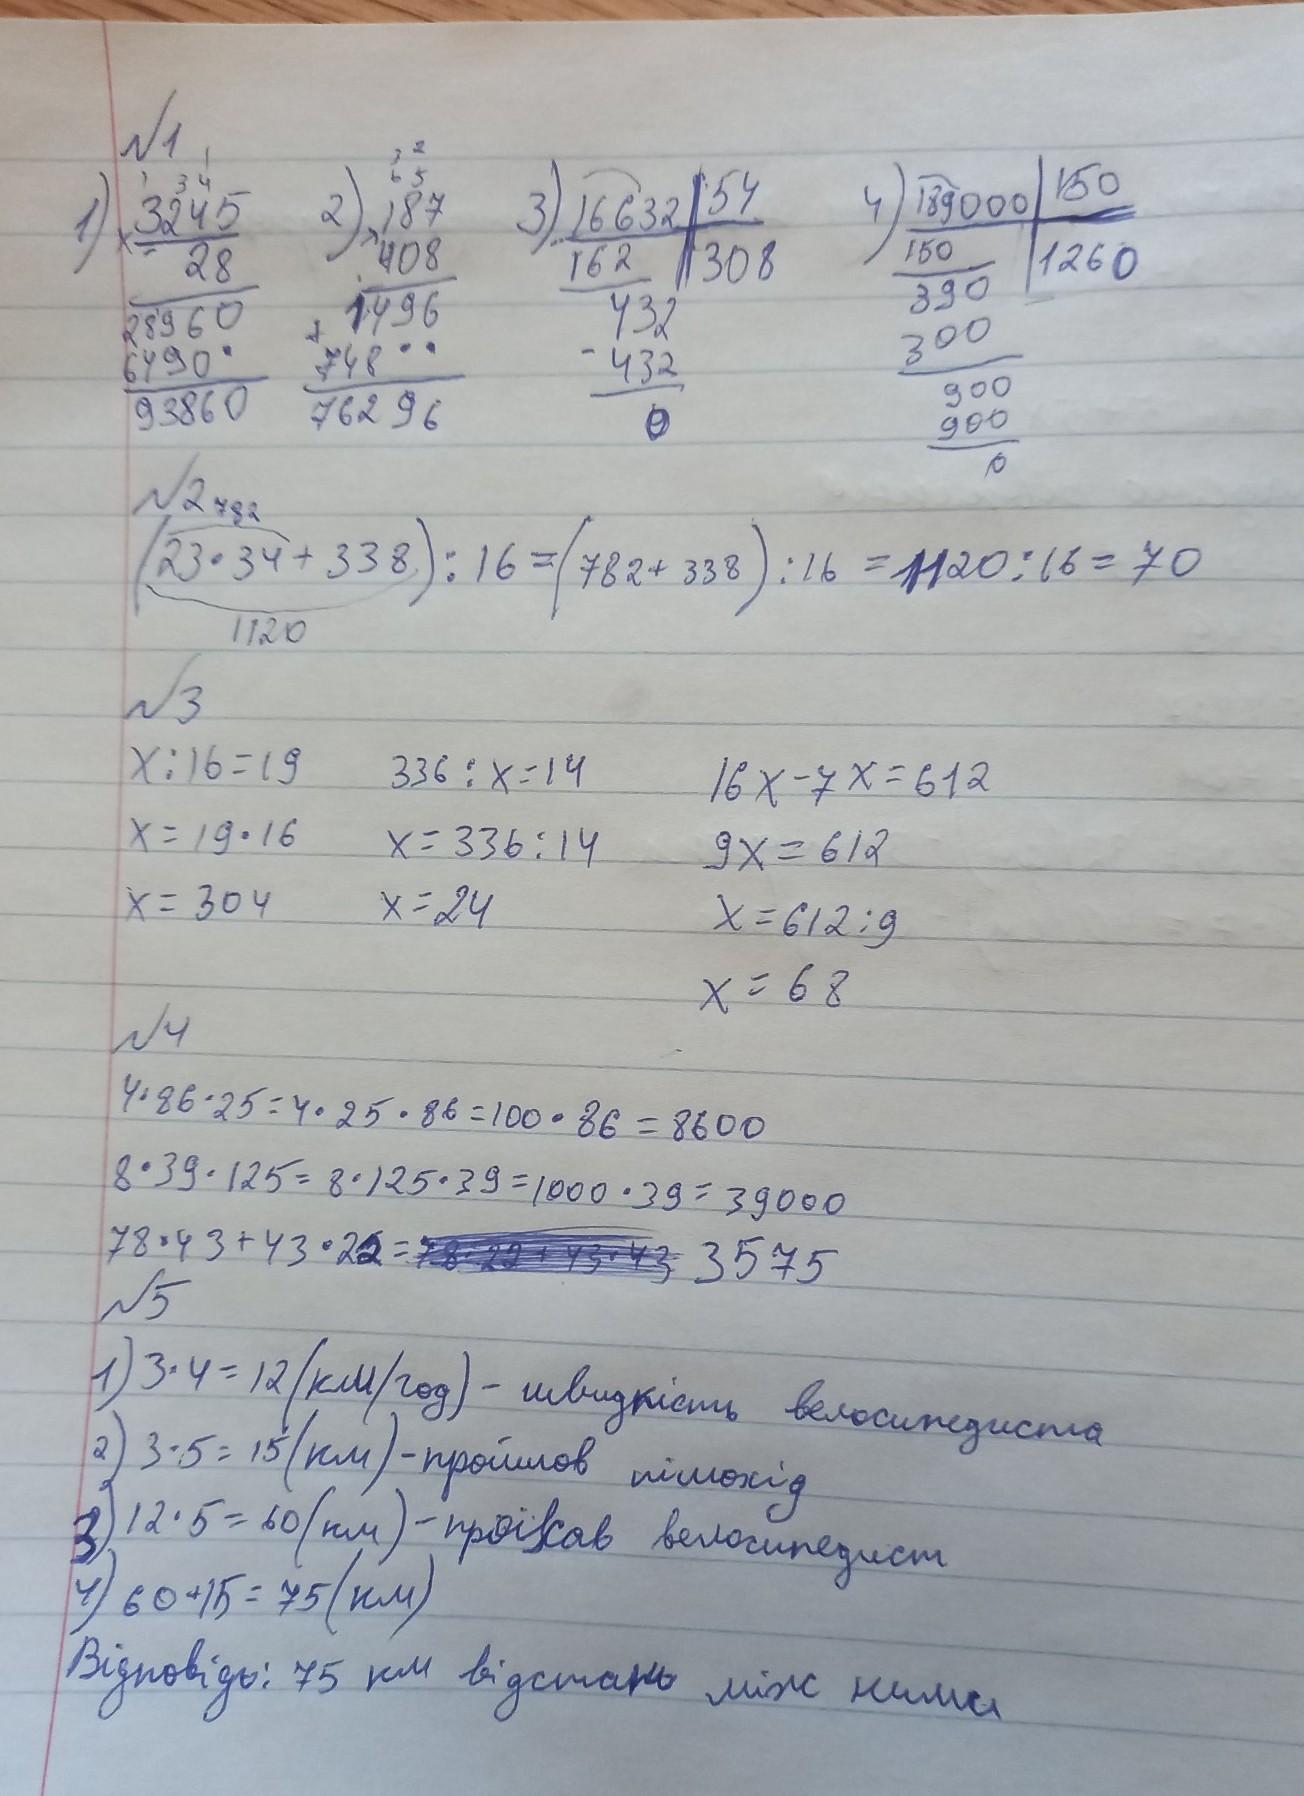 №1
1) 3245 2) 187 3) 16632 54 4) 189000 150
× 28 × 408 162 308 150 1260
28960 1496 432 390
6490• + 748•• - 432 300
93860 76296 0 900
900
0
№2 782
(23•34+338):16=(782+338):16=1120:16=70
1120
№3
x:16=19 336:x=14 16x-7x=612
x=19•16 x=336:14 9x=612
x=304 x=24 x=612:9
x=68
№4
4•86•25=4•25•86=100•86=8600
8•39•125=8•125•39=1000•39=39000
78•43+43•22= 3575
№5
1) 3•4=12(км/год)-швидкість велосипедиста
2) 3•5=15(км)-пройшов пішохід
3) 12•5=60(км)-проїхав велосипедист
4) 60+15=75(км)
Відповідь: 75 км відстань між ними